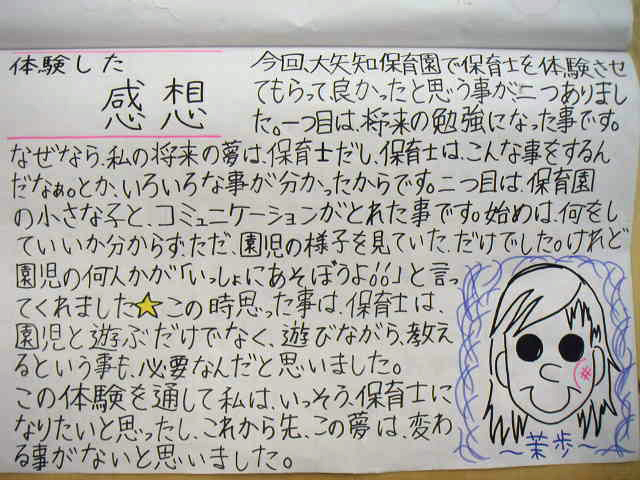 体験した
感想
今回、大矢知保育園で保育士を体験させ
てもらって、良かったと思う事が、二つありまし
た。一つ目は、将来の勉強になった事です。
なぜなら、私の将来の夢は、保育士だし、保育士は、こんな事をするん
だなぁ。とか、いろいろな事が分かったからです。二つ目は、保育園
の小さな子と、コミュニケーションがとれた事です。始めは、何をし
ていいか分からず、ただ、園児の様子を見ていた、だけでした。けれど
園児の何人かが「いっしょにあそぼうよ!!」と言っ
てくれました★この時思った事は、保育士は、
園児と遊ぶだけでなく、遊びながら、教え
るという事も、必要なんだと思いました。
この体験を通して私は、いっそう、保育士に
なりたいと思ったし、これから先、この夢は、変わ
る事がないと思いました。
～茉歩～